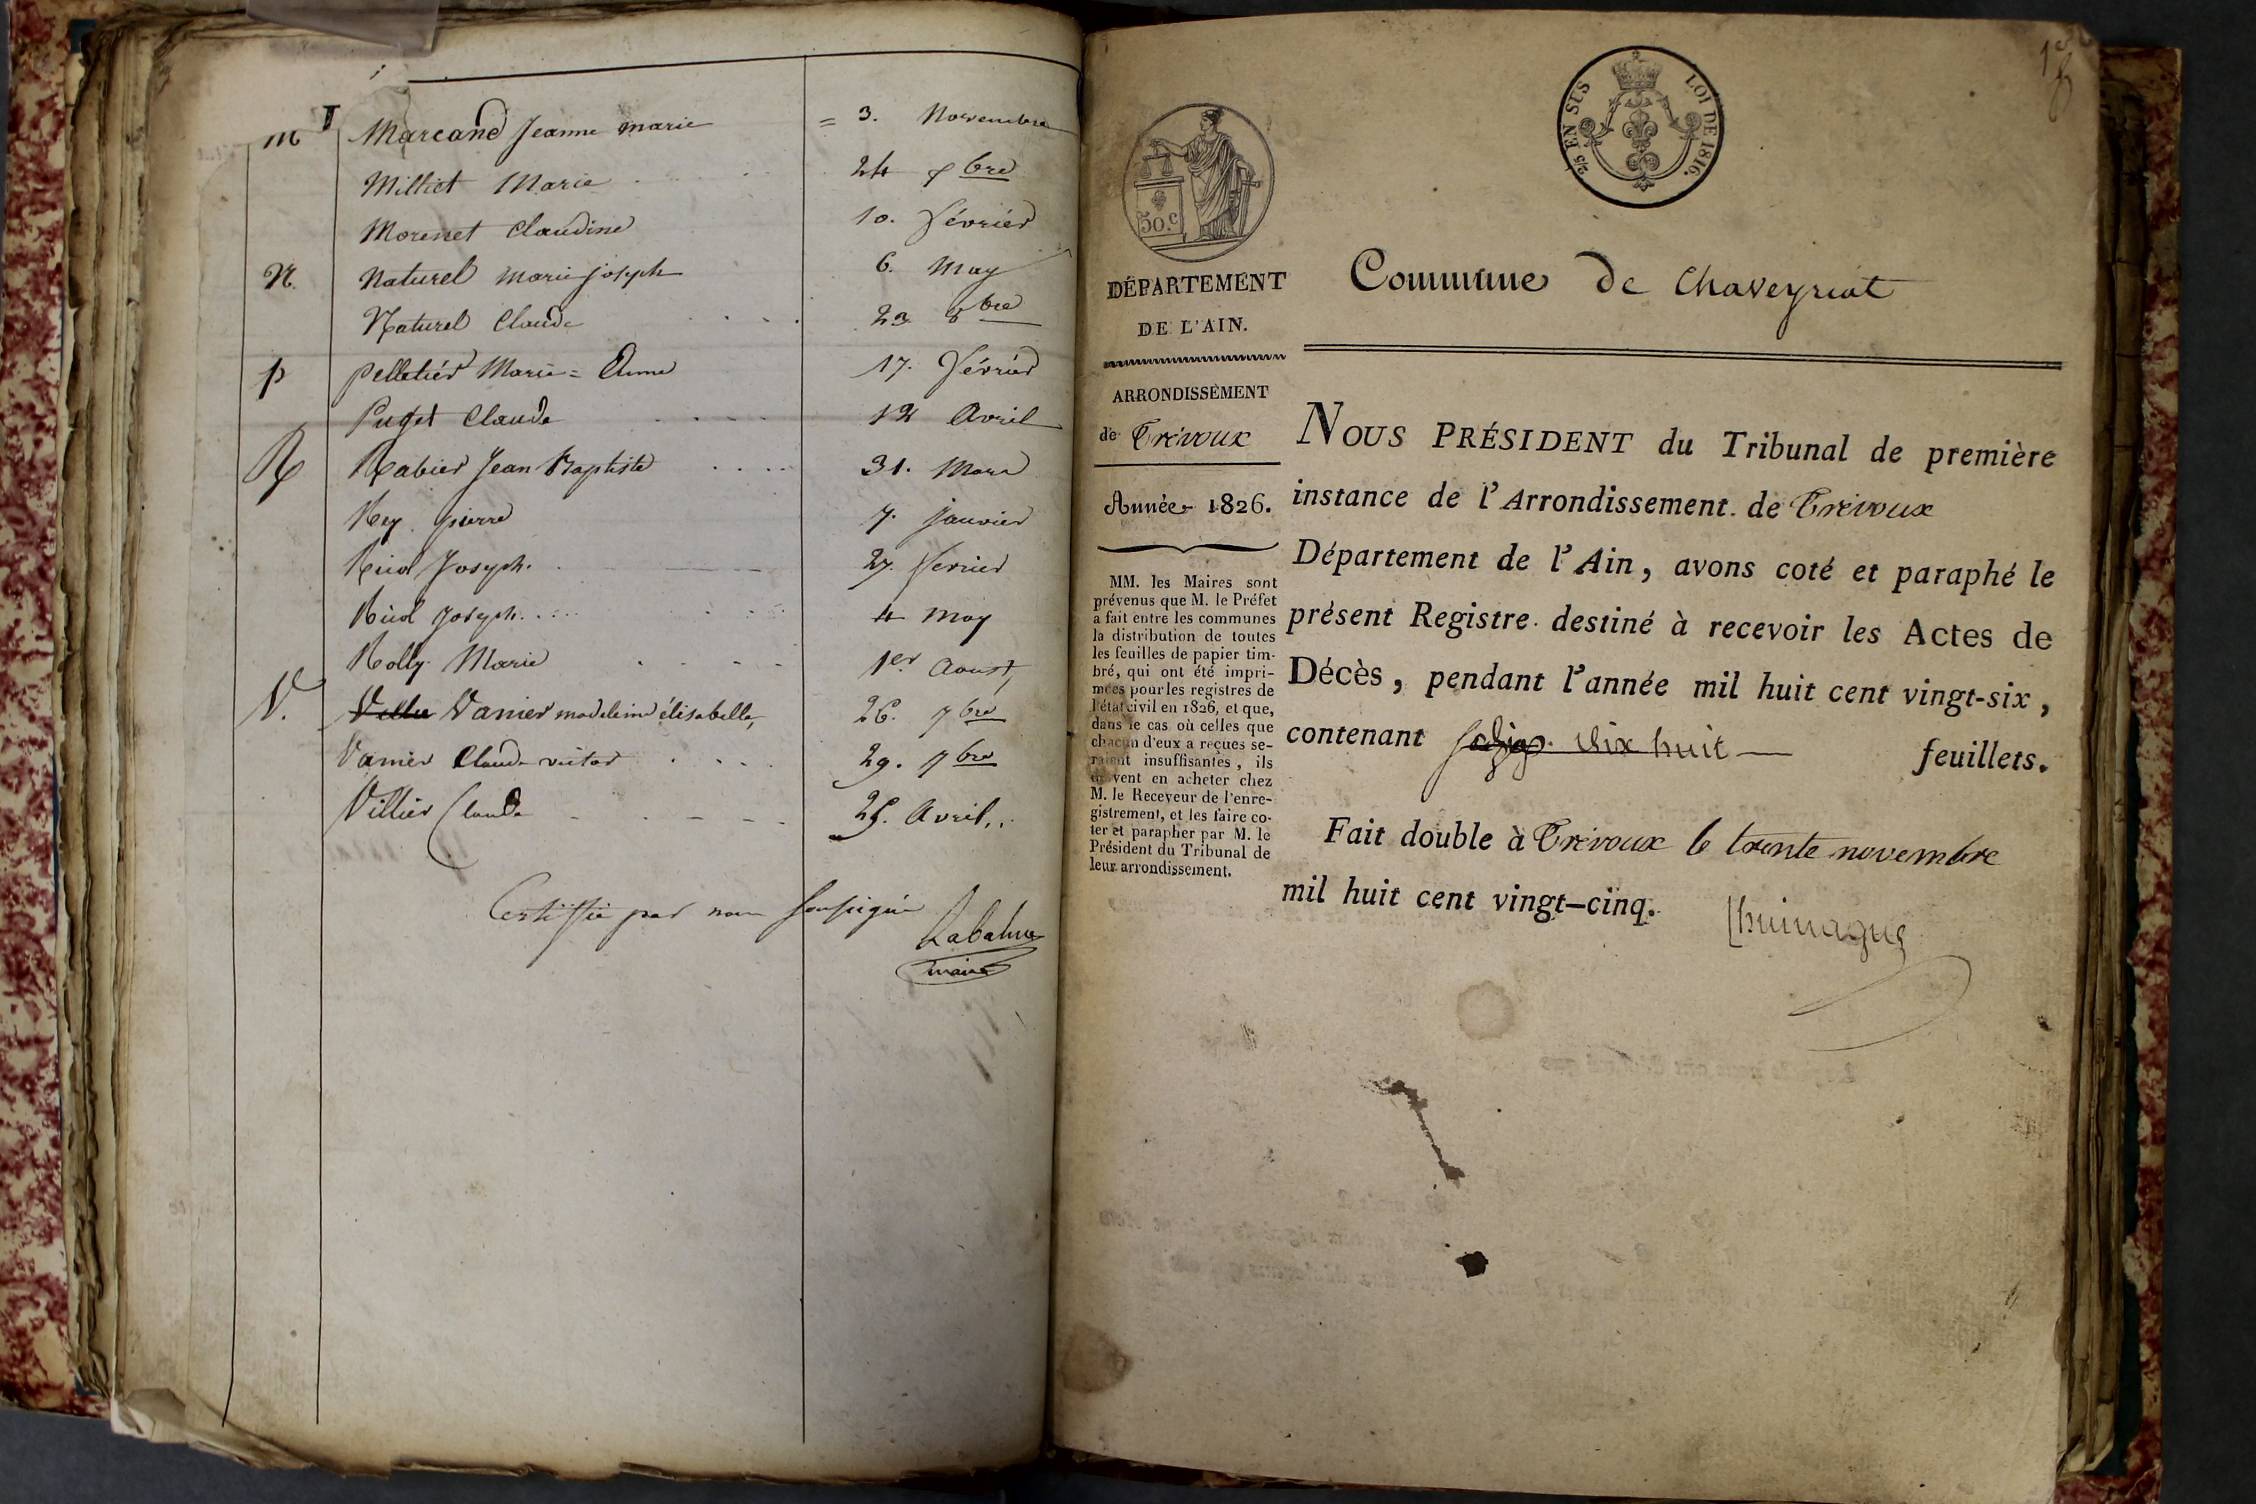 M Marcand Jeanne marie = 3. Novembre
Milliet Marie 24 bre
Morenet Claudine 10. février
N. Naturel marie joseph 6. May
Naturel Claude 23 8bre
P Pelletier Marie = Anne 17. février
Puget Claude 12 Avril
R Rabier Jean Baptiste 31. Mars
Rey pierre 7. janvier
Joseph. 27. fevrier
joseph 4 may
Rolly Marie 1er Aoust
V. Vanier madeleine élisabelle 26. 7bre
Vanier Claude victor 29. 7bre
Villier Claude 25. Avril..
Certiffié par nous soussigné
maire
2/5 EN SUS
LOI DE 1816.
50.c
DÉPARTEMENT
DE L'AIN.
ARRONDISSEMENT
de Trévoux
Année 1826.
MM. les Maires sont
prévenus que M. le Préfet
a fait entre les communes
la distribution de toutes
les feuilles de papier tim-
bré, qui ont été impri-
mées pour les registres de
l'état civil en 1826, et que,
dans le cas où celles que
chacun d'eux a reçues se-
raient insuffisantes, ils
devent en acheter chez
M. le Receveur de l'enre-
gistrement, et les faire co-
ter et parapher par M. le
Président du Tribunal de
leur arrondissement.
Commune de Chaveyriat
NOUS PRÉSIDENT du Tribunal de première
instance de l'Arrondissement de Trévoux
Département de l'Ain, avons coté et paraphé le
présent Registre destiné à recevoir les Actes de
Décès, pendant l'année mil huit cent vingt-six,
contenant dix huit feuillets.
Fait double à Trévoux le trente novembre
mil huit cent vingt-cinq.